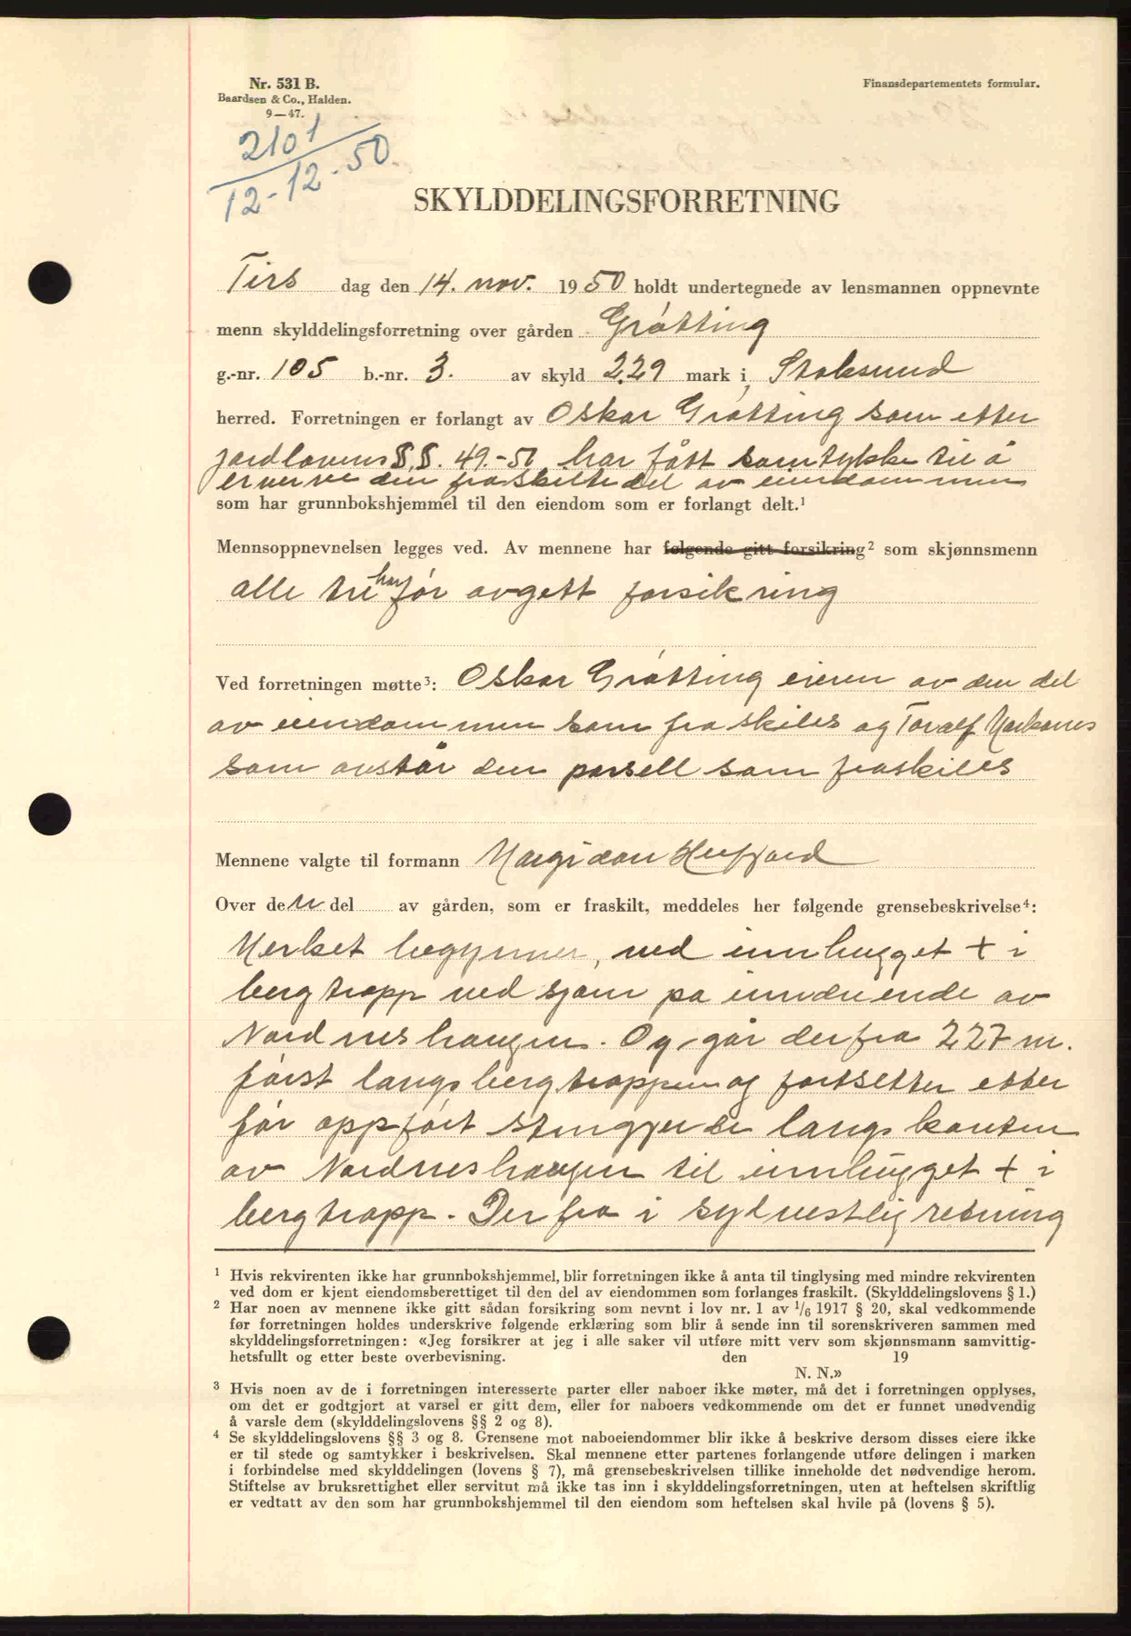 Nr. 531 B.
Baardsen & Co., Halden.
9—47.
Finansdepartementets formular.
2101
12-12-50
SKYLDDELINGSFORRETNING
Tirs dag den 14. nov. 1950 holdt undertegnede av lensmannen oppnevnte
menn skylddelingsforretning over gården Gråtting
g.-nr. 105 b.-nr. 3. av skyld 2.29 mark i Stoksund
herred. Forretningen er forlangt av Oskar Gråtting som etter
jordlovens §§. 49.-50 har fått samtykke til å
erverve den fraskilte del av eiendommen
som har grunnbokshjemmel til den eiendom som er forlangt delt.¹
Mennsoppnevnelsen legges ved. Av mennene har følgende gitt forsikring² som skjønnsmenn
alle tre har før avgett forsikring
Ved forretningen møtte³: Oskar Gråtting eieren av den del
av eiendommen som fraskiles og Toralf
som avstår den parsell som fraskiles
Mennene valgte til formann
Over den del av gården, som er fraskilt, meddeles her følgende grensebeskrivelse⁴:
Merket begynner, ved innhugget + i
bergtrapp ved sjøen på indre ende av
Nordneshaugen. Og går derfra 227 m.
først langs bergtrappen og fortsetter etter
før oppført stengjerde langs kanten
av Nordneshaugen til innhugget + i
bergtrapp. Derfra i sydvestlig retning
¹ Hvis rekvirenten ikke har grunnbokshjemmel, blir forretningen ikke å anta til tinglysing med mindre rekvirenten
ved dom er kjent eiendomsberettiget til den del av eiendommen som forlanges fraskilt. (Skylddelingslovens § 1.)
² Har noen av mennene ikke gitt sådan forsikring som nevnt i lov nr. 1 av 1/6 1917 § 20, skal vedkommende
før forretningen holdes underskrive følgende erklæring som blir å sende inn til sorenskriveren sammen med
skylddelingsforretningen: «Jeg forsikrer at jeg i alle saker vil utføre mitt verv som skjønnsmann samvittig-
hetsfullt og etter beste overbevisning. den 19
N. N.»
³ Hvis noen av de i forretningen interesserte parter eller naboer ikke møter, må det i forretningen opplyses,
om det er godtgjort at varsel er gitt dem, eller for naboers vedkommende om det er funnet unødvendig
å varsle dem (skylddelingslovens §§ 2 og 8).
⁴ Se skylddelingslovens §§ 3 og 8. Grensene mot naboeiendommer blir ikke å beskrive dersom disses eiere ikke
er til stede og samtykker i beskrivelsen. Skal mennene etter partenes forlangende utføre delingen i marken
i forbindelse med skylddelingen (lovens § 7), må grensebeskrivelsen tillike inneholde det nødvendige herom.
Stiftelse av bruksrettighet eller servitut må ikke tas inn i skylddelingsforretningen, uten at heftelsen skriftlig
er vedtatt av den som har grunnbokshjemmel til den eiendom som heftelsen skal hvile på (lovens § 5).